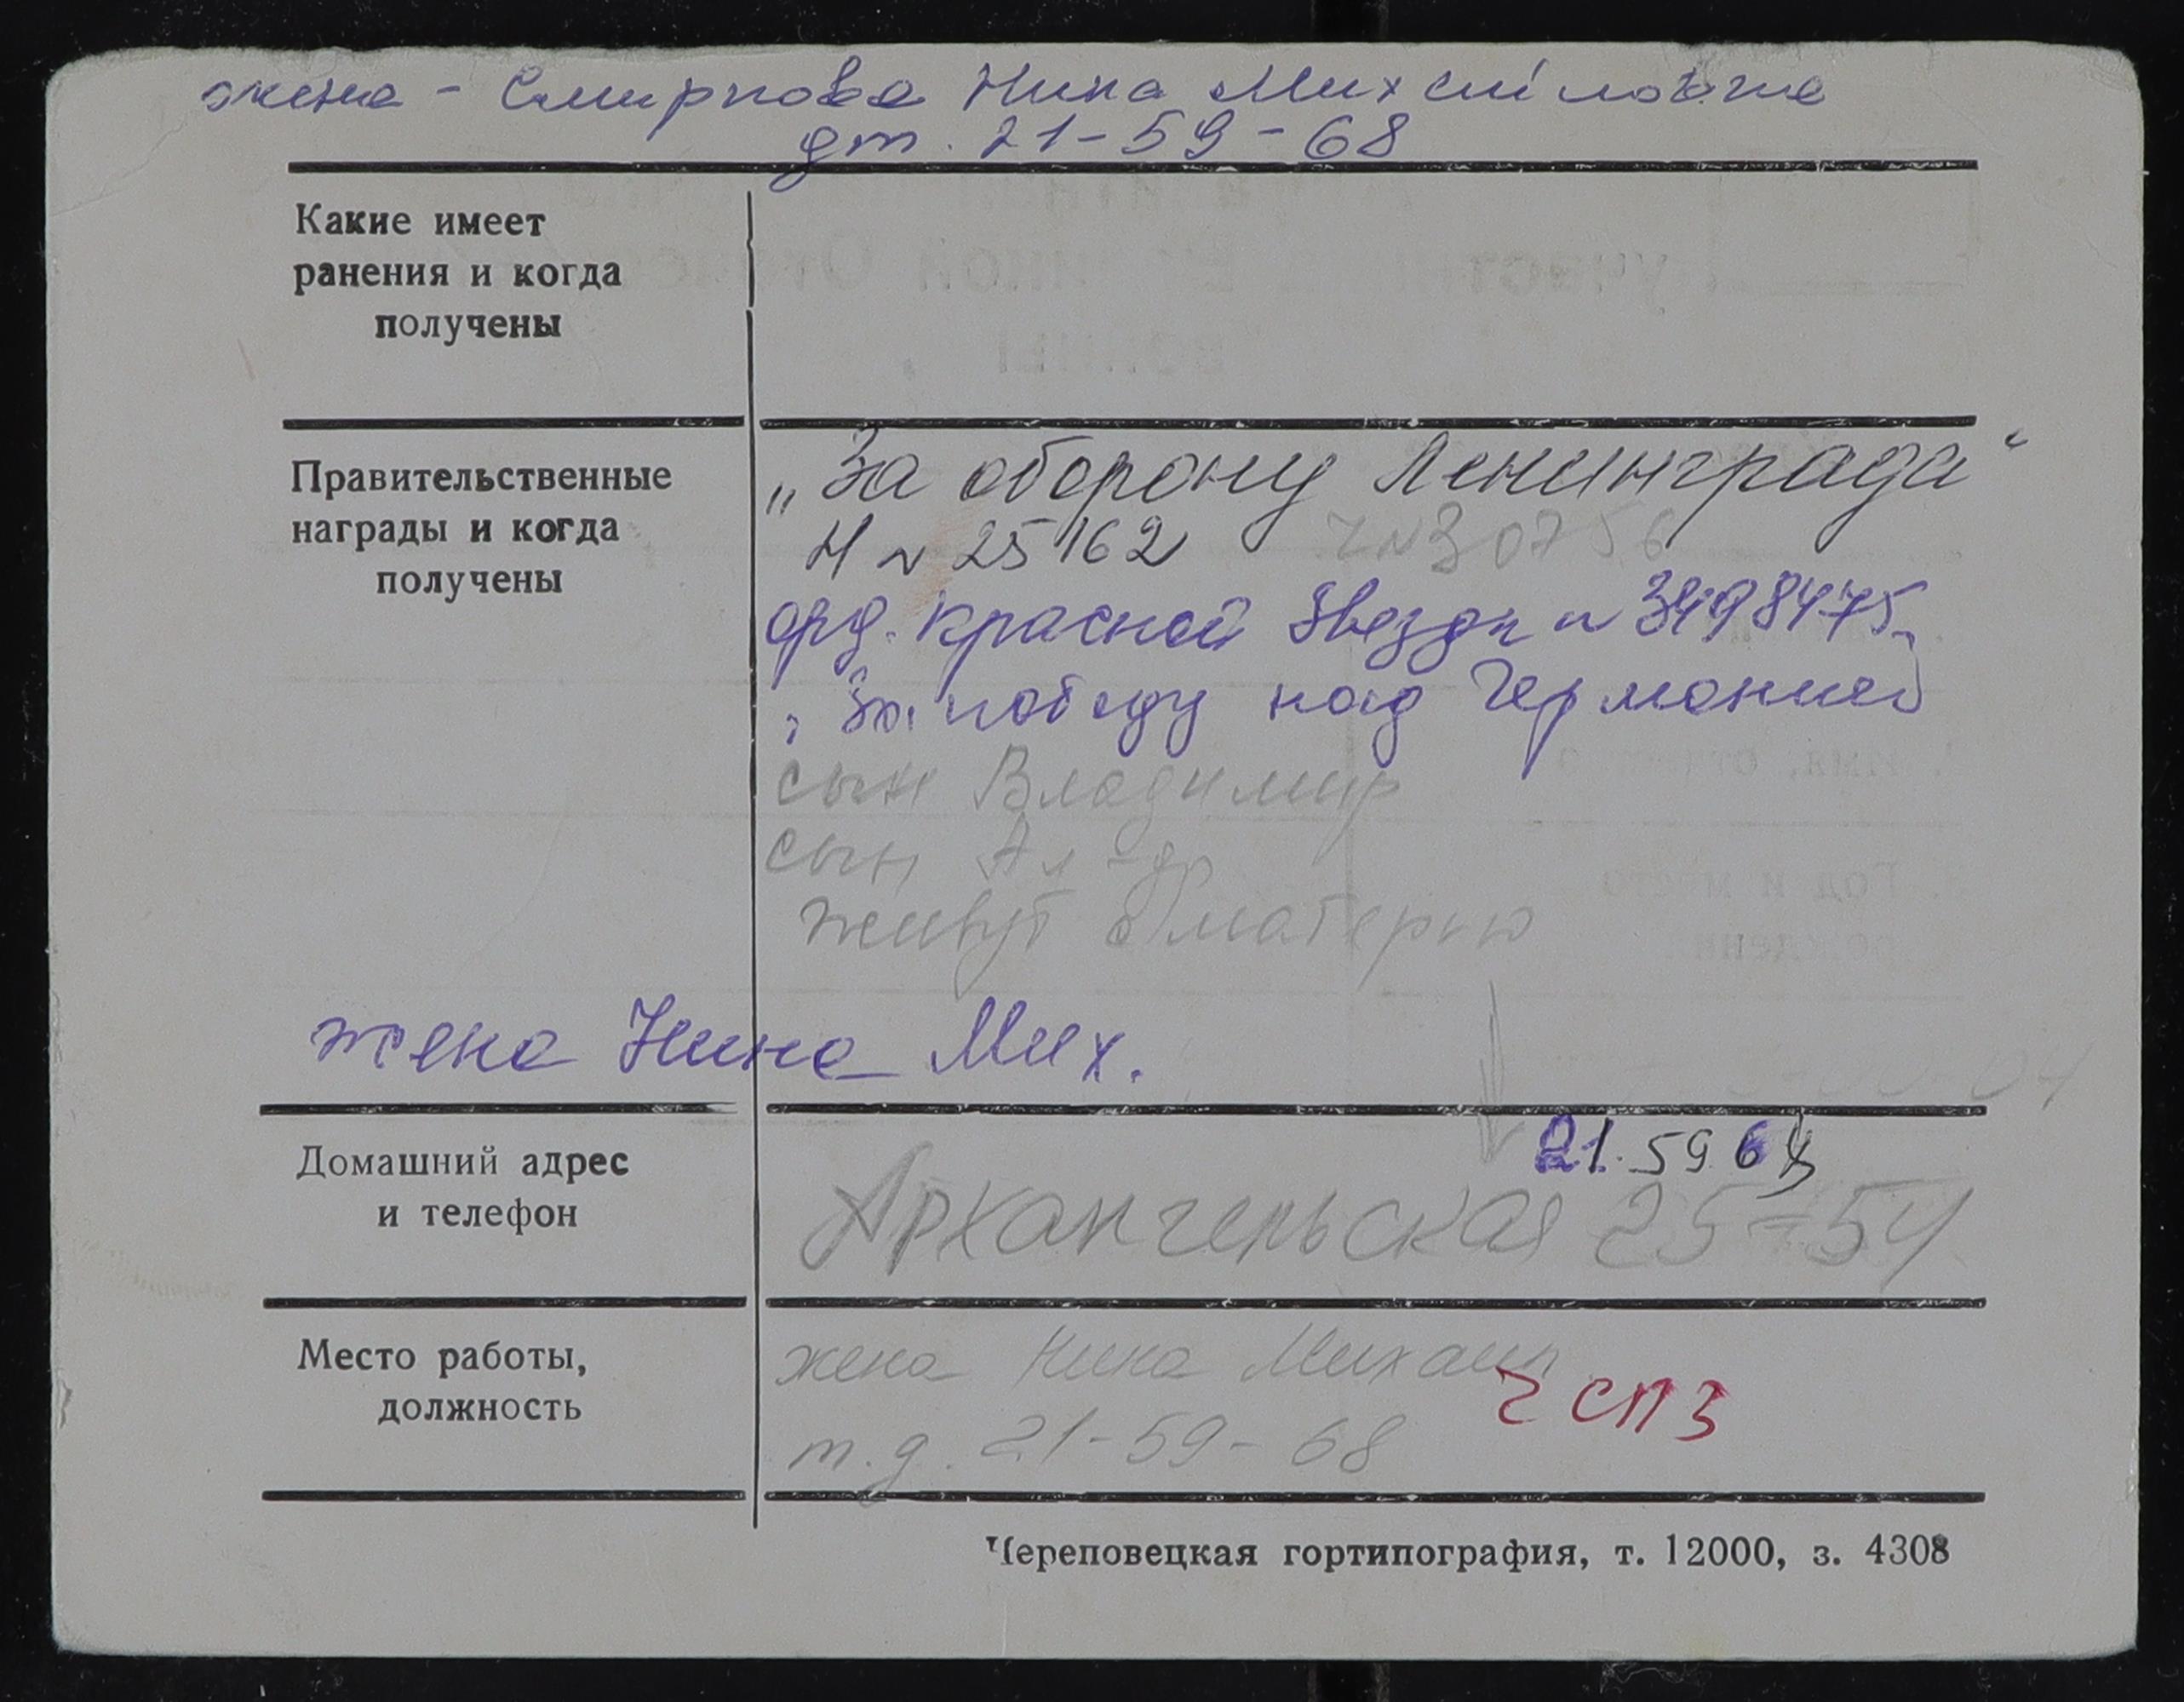 жена - Смирнова Нина Михайловна
дт. 21-59-68
Какие имеет
ранения и когда
получены
Правительственные
награды и когда
получены
„За оборону Ленинграда“
Н № 25162
орд. Красной Звезды № 3498475
„За победу над Германией
сын Владимир
сын Ал-др
живут с матерью
жена Нина Мих.
Домашний адрес
и телефон
21.59.68
Архангельская 25-54
Место работы,
должность
жена Нина Михаил
т.д. 21-59-68
ЧСПЗ
Череповецкая гортипография, т. 12000, з. 4308